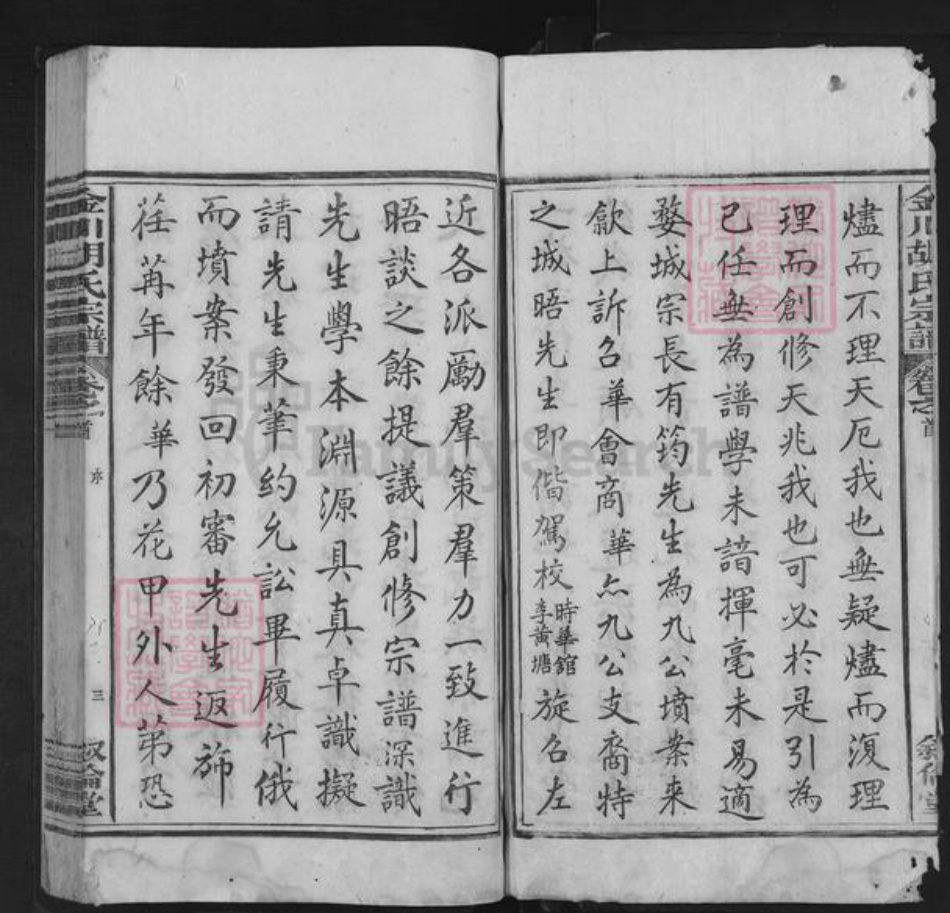 金川胡氏宗譜
卷之首
燼而不理天厄我也無疑燼而復理
理而創修天兆我也可必於是引為
己任無為譜學未諳揮毫未易適
婺城宗長有筠先生為九公墳案來
歙上訴召華會商華亦九公支裔特
之城晤先生即偕駕校時華館李黃塘旋召左
近各派勵羣策羣力一致進行
晤談之餘提議創修宗譜深識
先生學本淵源具真卓識擬
請先生秉筆約允訟畢履行俄
而墳案發回初審先生返斾
荏苒年餘華乃花甲外人苐恐
金川胡氏宗譜
卷之首
三
敘倫堂
FamilySearch